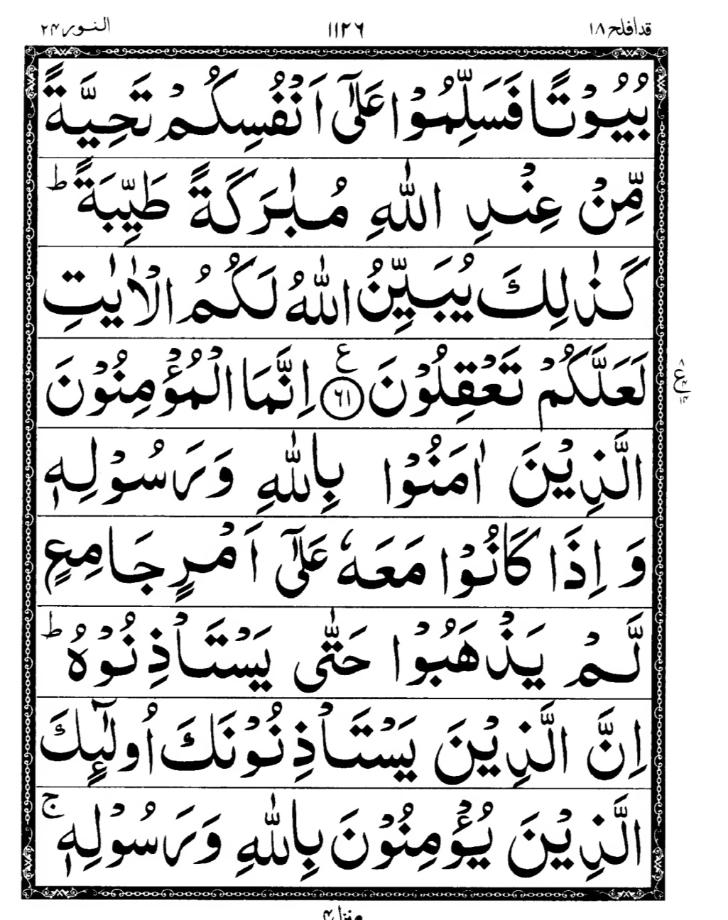 قد افلح ۱۸ ۱۱۲۶ النور ۲۴
بُيُوْتًا فَسَلِّمُوْا عَلٰٓى اَنْفُسِكُمْ تَحِيَّةً
مِّنْ عِنْدِ اللّٰهِ مُبٰرَكَةً طَيِّبَةً ؕ
كَذٰلِكَ يُبَيِّنُ اللّٰهُ لَكُمُ الْاٰيٰتِ
لَعَلَّكُمْ تَعْقِلُوْنَ ع ۶۱ اِنَّمَا الْمُؤْمِنُوْنَ
الَّذِيْنَ اٰمَنُوْا بِاللّٰهِ وَرَسُوْلِهٖ
وَ اِذَا كَانُوْا مَعَهٗ عَلٰٓى اَمْرٍ جَامِعٍ
لَّمْ يَذْهَبُوْا حَتّٰى يَسْتَاْذِنُوْهُ ؕ
اِنَّ الَّذِيْنَ يَسْتَاْذِنُوْنَكَ اُولٰٓئِكَ
الَّذِيْنَ يُؤْمِنُوْنَ بِاللّٰهِ وَرَسُوْلِهٖ ۚ
۸ ع ۴ ۱۴
منزل ۴